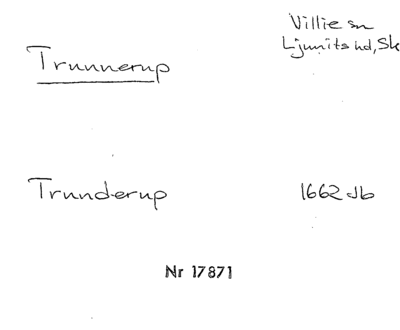 Villie sn
Trunnerup Ljunits hd, Sk
Trunderup 1662 Jb
Nr 17871